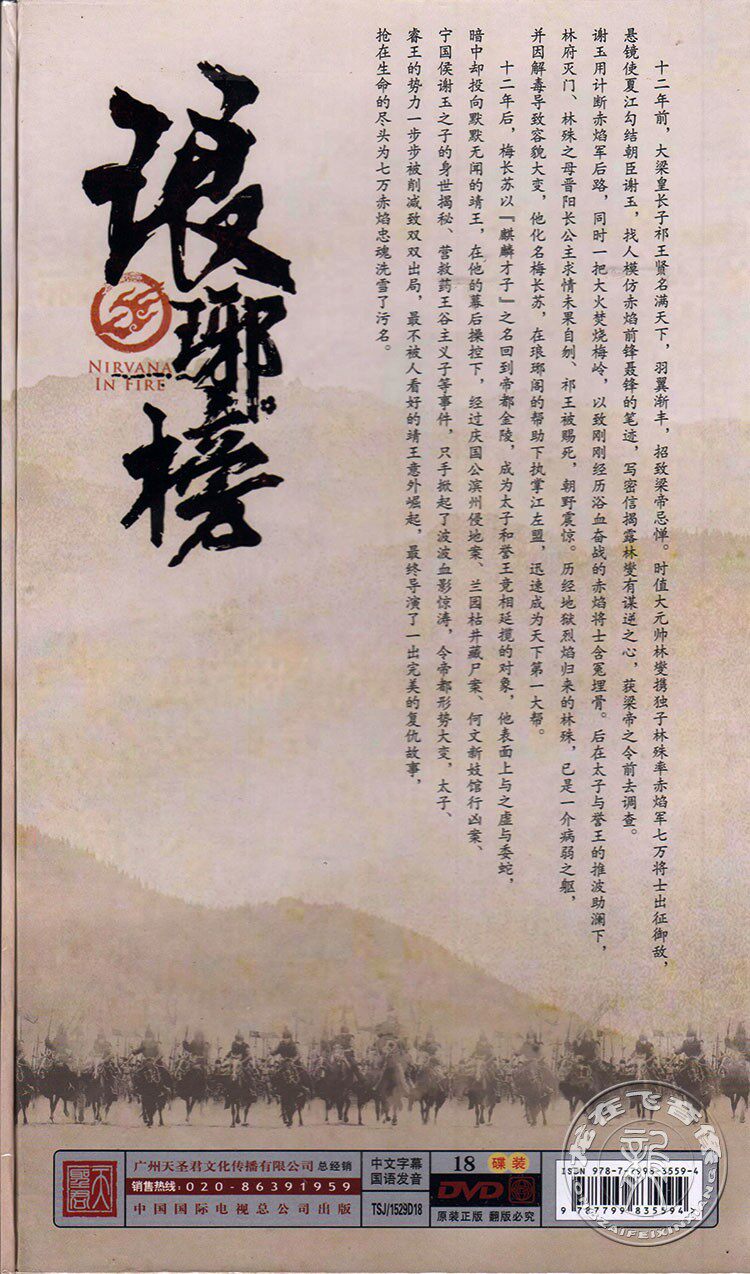 十二年前，大梁皇长子祁王贤名满天下，羽翼渐丰，招致梁帝忌惮。时值大元帅林燮携独子林殊率赤焰军七万将士出征御敌，
悬镜使夏江勾结朝臣谢玉，找人模仿赤焰前锋聂锋的笔迹，写密信揭露林燮有谋逆之心，获梁帝之令前去调查。
谢玉用计断赤焰军后路，同时一把大火焚烧梅岭，以致刚刚经历浴血奋战的赤焰将士含冤埋骨。后在太子与誉王的推波助澜下，
林府灭门、林殊之母晋阳长公主求情未果自刎、祁王被赐死，朝野震惊。历经地狱烈焰归来的林殊，已是一介病弱之躯，
并因解毒导致容貌大变，他化名梅长苏，在琅琊阁的帮助下执掌江左盟，迅速成为天下第一大帮。
十二年后，梅长苏以『麒麟才子』之名回到帝都金陵，成为太子和誉王竞相延揽的对象，他表面上与之虚与委蛇，
暗中却投向默默无闻的靖王，在他的幕后操控下，经过庆国公滨州侵地案、兰园枯井藏尸案、何文新妓馆行凶案、
宁国侯谢玉之子的身世揭秘、营救药王谷主义子等事件，只手掀起了波波血影惊涛，令帝都形势大变，太子、
睿王的势力一步步被削减致双双出局，最不被人看好的靖王意外崛起，最终导演了一出完美的复仇故事，
抢在生命的尽头为七万赤焰忠魂洗雪了污名。
琅琊榜
NIRVANA
IN FIRE
天圣君
广州天圣君文化传播有限公司 总经销
销售热线：020-86391959
中国国际电视总公司出版
中文字幕
国语发音
TSJ/1529D18
18 碟装
DVD
原装正版 翻版必究
ISBN 978-7-7998-3559-4
9 787799 835594